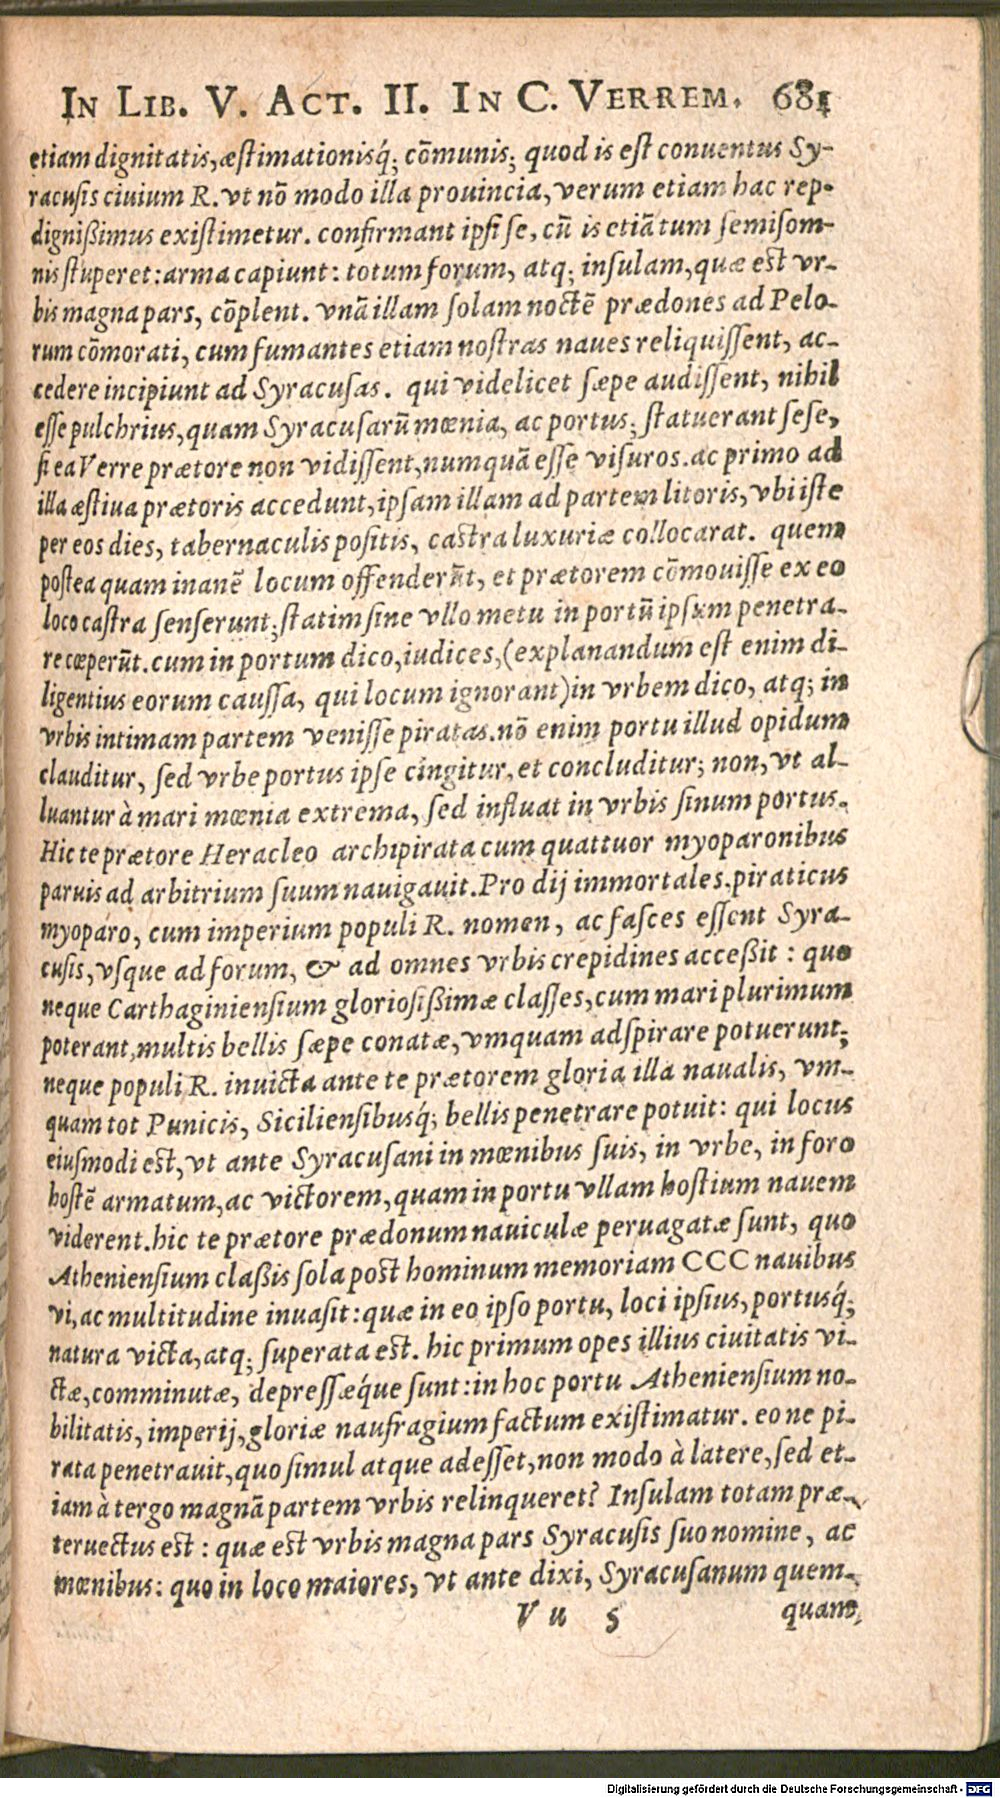 IN LIB. V. ACT. II. IN C. VERREM. 681
etiam dignitatis, æstimationisq́; cõmunis; quod is est conuentus Sy-
racusis ciuium R. vt nõ modo illa prouincia, verum etiam hac rep.
dignißimus existimetur. confirmant ipsi se, cũ is etiã tum semisom-
nis stuperet: arma capiunt: totum forum, atq; insulam, quæ est vr-
bis magna pars, cõplent. vnã illam solam noctẽ prædones ad Pelo-
rum cõmorati, cum fumantes etiam nostras naues reliquissent, ac-
cedere incipiunt ad Syracusas. qui videlicet sæpe audissent, nihil
esse pulchrius, quam Syracusarũ mœnia, ac portus; statuerant sese,
si ea Verre prætore non vidissent, numquã esse visuros. ac primo ad
illa æstiua prætoris accedunt, ipsam illam ad partem litoris, vbi iste
per eos dies, tabernaculis positis, castra luxuriæ collocarat. quem
postea quam inanẽ locum offenderũt, et prætorem cõmouisse ex eo
loco castra senserunt; statim sine vllo metu in portũ ipsum penetra-
re cœperũt. cum in portum dico, iudices, (explanandum est enim di-
ligentius eorum caussa, qui locum ignorant) in vrbem dico, atq; in
vrbis intimam partem venisse piratas. nõ enim portu illud opidum
clauditur, sed vrbe portus ipse cingitur, et concluditur; non, vt al-
luantur à mari mœnia extrema, sed influat in vrbis sinum portus.
Hic te prætore Heracleo archipirata cum quattuor myoparonibus
paruis ad arbitrium suum nauigauit. Pro dij immortales. piraticus
myoparo, cum imperium populi R. nomen, ac fasces essent Syra-
cusis, vsque ad forum, & ad omnes vrbis crepidines acceßit: quo
neque Carthaginiensium gloriosißimæ classes, cum mari plurimum
poterant, multis bellis sæpe conatæ, vmquam adspirare potuerunt;
neque populi R. inuicta ante te prætorem gloria illa naualis, vm-
quam tot Punicis, Siciliensibusq́; bellis penetrare potuit: qui locus
eiusmodi est, vt ante Syracusani in mœnibus suis, in vrbe, in foro
hostẽ armatum, ac victorem, quam in portu vllam hostium nauem
viderent. hic te prætore prædonum nauiculæ peruagatæ sunt, quo
Atheniensium claßis sola post hominum memoriam CCC nauibus
vi, ac multitudine inuasit: quæ in eo ipso portu, loci ipsius, portusq́;
natura victa, atq; superata est. hic primum opes illius ciuitatis vi-
ctæ, comminutæ, depressæq́ue sunt: in hoc portu Atheniensium no-
bilitatis, imperij, gloriæ naufragium factum existimatur. eo ne pi-
rata penetrauit, quo simul atque adesset, non modo à latere, sed et-
iam à tergo magnã partem vrbis relinqueret? Insulam totam præ-
teruectus est: quæ est vrbis magna pars Syracusis suo nomine, ac
mœnibus: quo in loco maiores, vt ante dixi, Syracusanum quem-
V u 5 quam
Digitalisierung gefördert durch die Deutsche Forschungsgemeinschaft - DFG